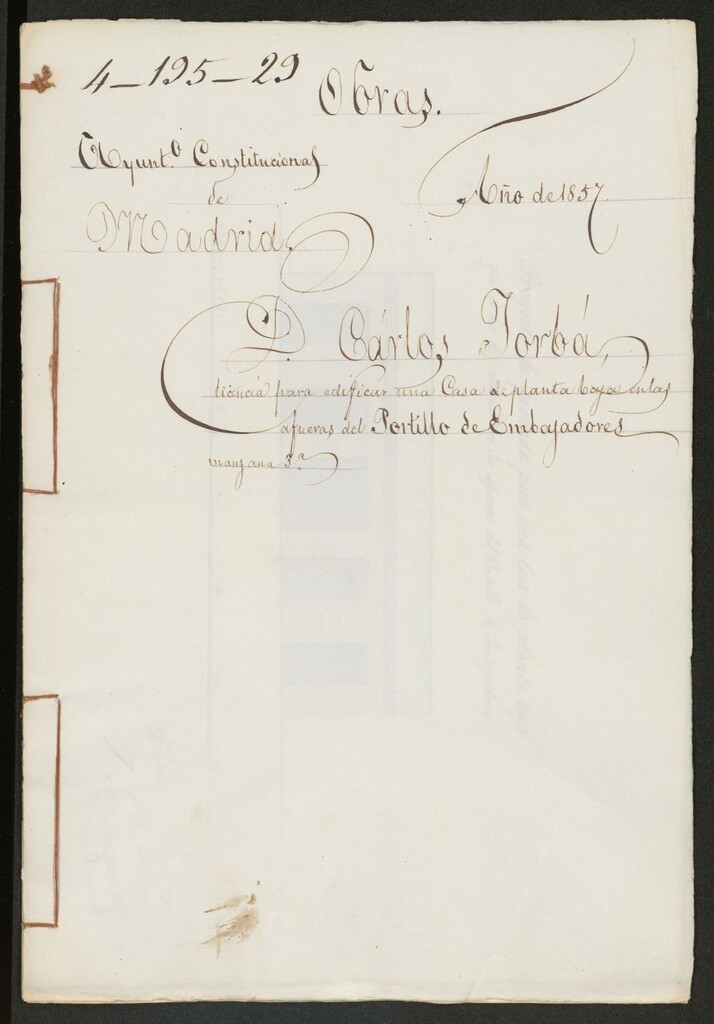 4-195-29
Obras.
Ayunt.º Constitucional
de
Madrid.
Año de 1857.
D. Cárlos Torbá,
licencia para edificar una Casa de planta baja en las
afueras del Portillo de Embajadores
manzana 3.ª